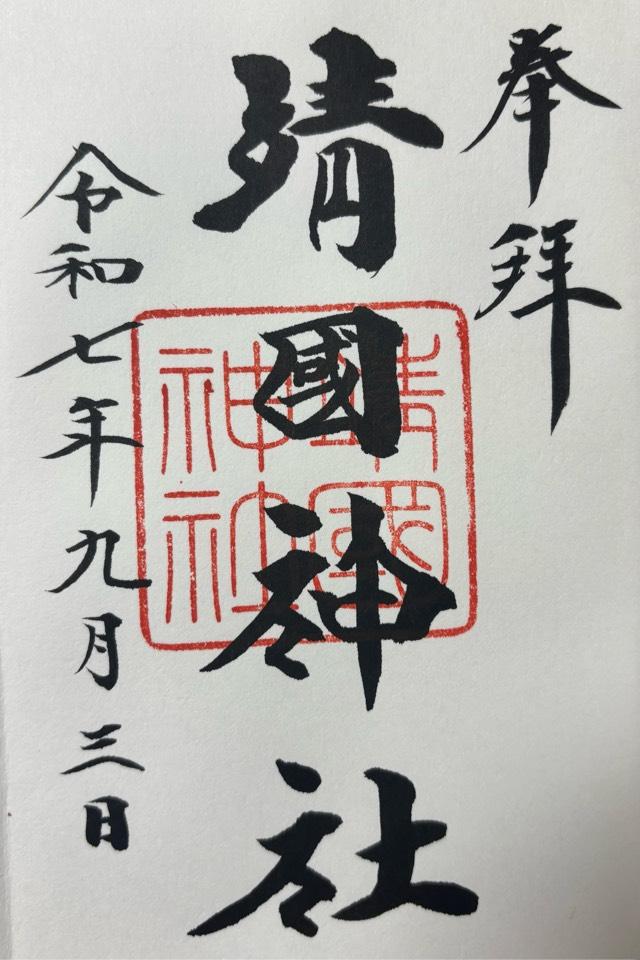 奉拝
靖國神社
靖國神社
令和七年九月三日